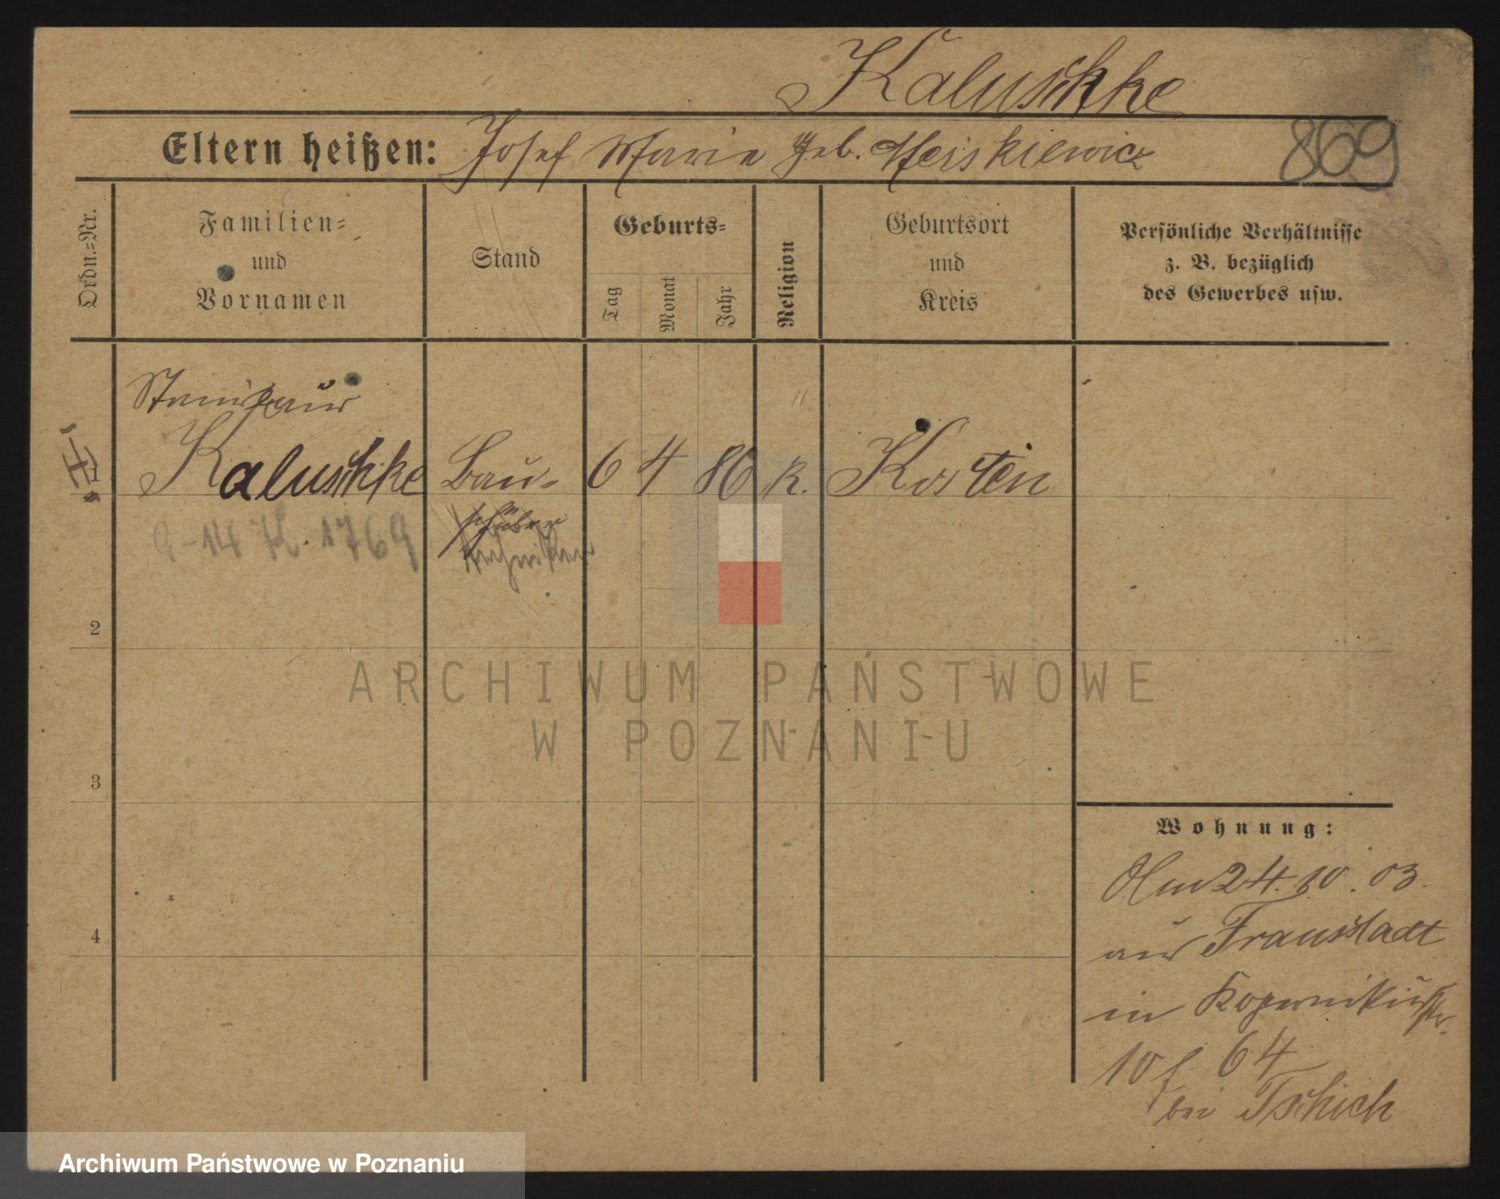 Kaluschke
Eltern heißen: Josef Marie geb. Meiskiewicz
869
Ordn.-Nr.
Familien-
und
Vornamen
Stand
Geburts-
Tag
Monat
Jahr
Religion
Geburtsort
und
Kreis
Persönliche Verhältnisse
z. B. bezüglich
des Gewerbes usw.
Kaluschke Bau- 6 4 86 k. Kosten
schüler
Techniker
G-14 K. 1769
2
3
4
ARCHIWUM PAŃSTWOWE
W POZNANIU
Wohnung:
Am 24. 10. 03.
aus Fraustadt
in Kopernikusstr.
10 f 64
bei Tschich
Archiwum Państwowe w Poznaniu